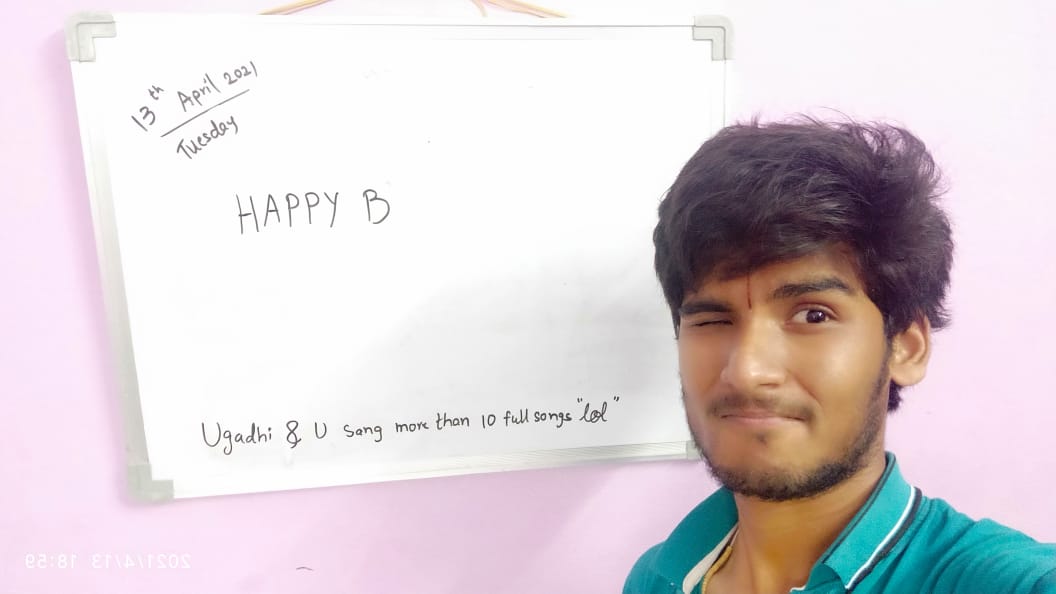 13th April 2021
Tuesday
HAPPY B
Ugadhi & U sang more than 10 full songs "lol"
2021/4/13 18:59